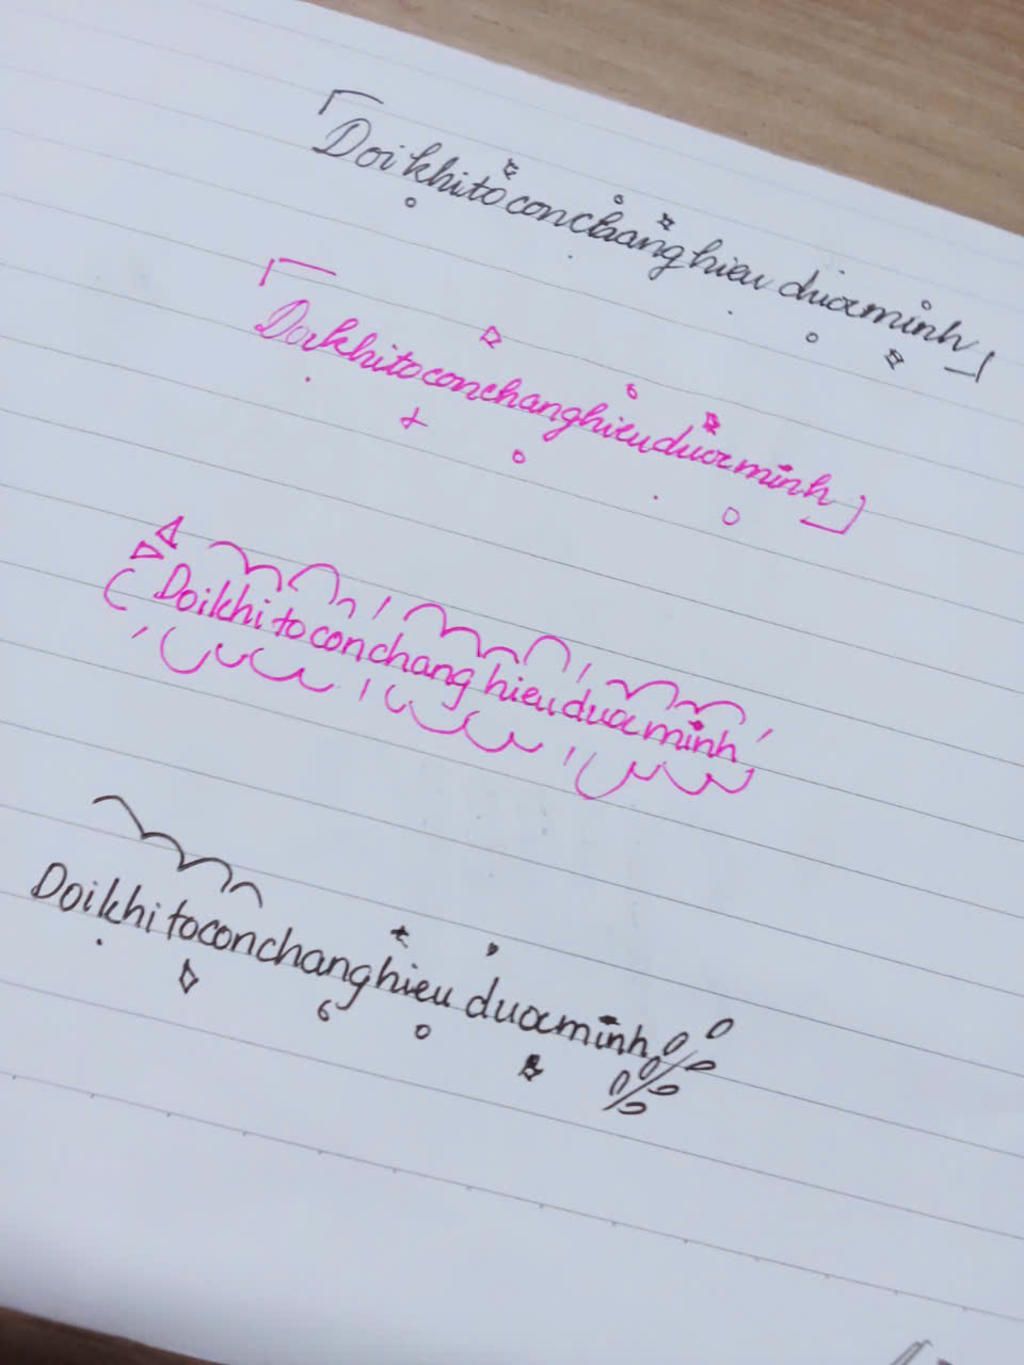 Doikhitoconchanghieu duocminh
Doikhitoconchanghieuduocminh
Doikhi toconchang hieuduocminh
Doikhi toconchanghieu duocminh